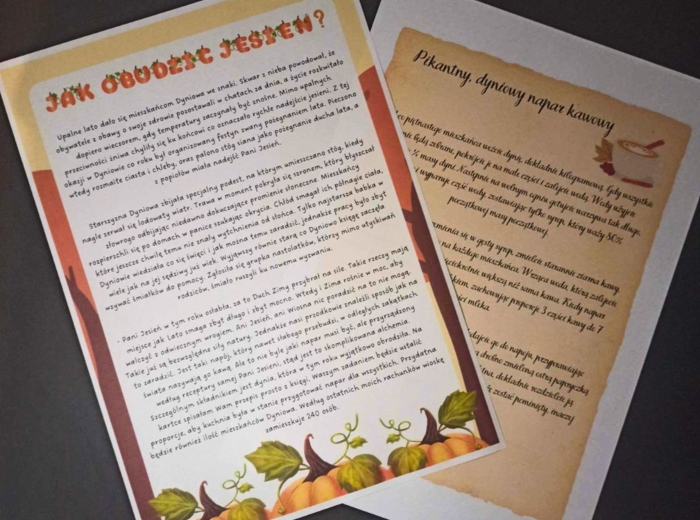 JAK OBUDZIĆ JESIEŃ?
Upalne lato dało się mieszkańcom Dyniowa we znaki. Skwar z nieba powodował, że
obywatele z obawy o swoje zdrowie pozostawali w chatach za dnia, a życie rozkwitało
dopiero wieczorem, gdy temperatury zaczynały być znośne. Mimo upalnych
przeciwności żniwa chyliły się ku końcowi co oznaczało rychłe nadejście jesieni. Z tej
okazji w Dyniowie co roku był organizowany festyn zwany pożegnaniem lata. Pieczono
wtedy rozmaite ciasta i chleby, oraz palono stóg siana jako pożegnanie ducha lata, a
z popiołów miała nadejść Pani Jesień.
Starszyzna Dyniowa zbijała specjalny podest, na którym umieszczano stóg, kiedy
nagle zerwał się lodowaty wiatr. Trawa w moment pokryła się szronem, który błyszczał
złowrogo odbijając niedawno dokuczające promienie słoneczne. Mieszkańcy
rozpierzchli się po domach w panice szukając okrycia. Chłód smagał ich półnagie ciała,
które jeszcze chwilę temu nie znały wytchnienia od słońca. Tylko najstarsza babka w
Dyniowie wiedziała co się święci i jak można temu zaradzić, jednakże pracy było zbyt
wiele jak na jej sędziwy już wiek. Wyjąwszy równie starą co Dyniowo księgę zaczęła
wzywać śmiałków do pomocy. Zgłosiła się grupka nastolatków, którzy mimo utyskiwań
rodziców, śmiało ruszyli ku nowemu wyzwaniu.
- Pani Jesień w tym roku osłabła, za to Duch Zimy przybrał na sile. Takie rzeczy mają
miejsce jak Lato smaga zbyt długo i zbyt mocno. Wtedy i Zima rośnie w moc, aby
walczyć z odwiecznym wrogiem. Ani Jesień, ani Wiosna nic poradzić na to nie mogą.
Takie już są bezwzględne siły natury. Jednakże nasi przodkowie znaleźli sposób jak na
to zaradzić. Jest taki napój, który nawet słabego przebudzi, w odległych zakątkach
świata nazywają go kawą. Ale to nie byle jaki napar musi być, ale przyrządzony
według receptury samej Pani Jesieni, stąd jest to skomplikowana alchemia.
Szczególnym składnikiem jest dynia, która w tym roku wyjątkowo obrodziła. Na
kartce spisałam Wam przepis prosto z księgi. Waszym zadaniem będzie ustalić
proporcje, aby kuchnia była w stanie przygotować napar dla wszystkich. Przydatna
będzie również ilość mieszkańców Dyniowa. Według ostatnich moich rachunków wioskę
zamieszkuje 240 osób.
Pikantny, dyniowy napar kawowy
piętnastego mieszkańca weźcie dynię, dokładnie kilogramową. Gdy wszystkie
będą zebrane, pokrójcie je na małe części i zalejcie wodą. Wody użyjcie
% masy dyni. Następnie na wolnym ogniu gotujcie warzywa tak długo,
wyparuje część wody, zostawiając tylko syrop, który waży 80%
początkowej masy początkowej.
zmienia się w gęsty syrop, zmielcie starannie ziarna kawy.
na każdego mieszkańca. Wrząca woda, którą zalejecie
większą niż sama kawa. Kiedy napar
zachowując proporcje 3 części kawy do 7
mleka.
go do napoju, przyprawiając
drobno zmieloną ostrą papryczką
dokładnie wcześniej ją
4 zostać pominięty, inaczej